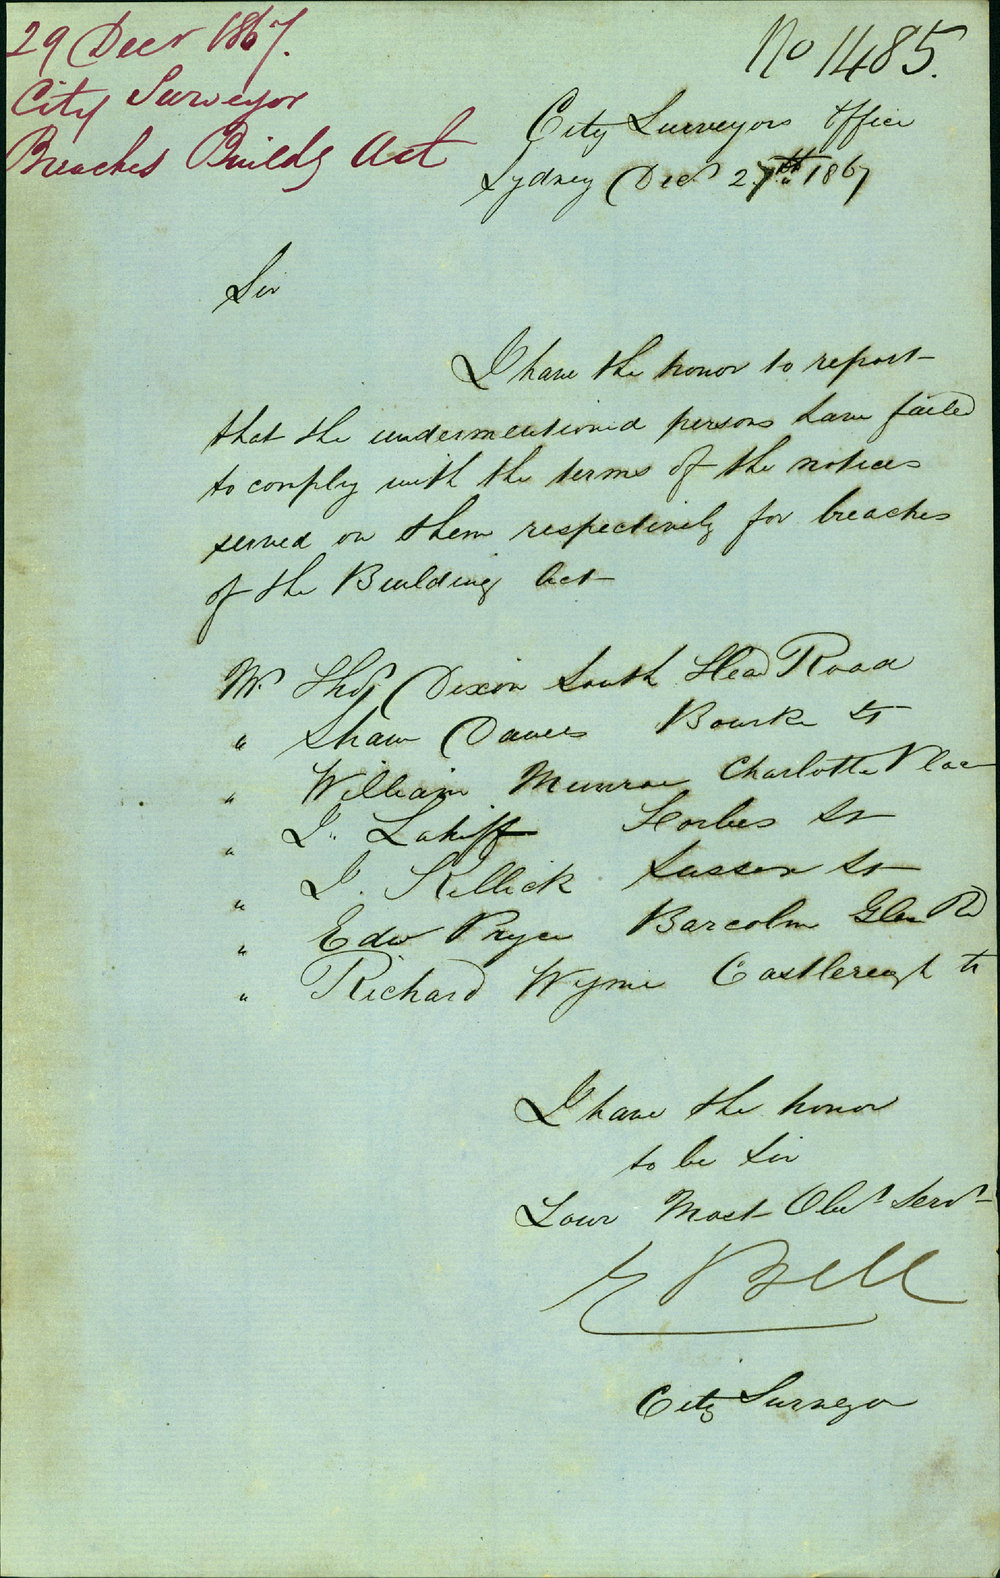 29 Decr 1867.
City Surveyor
Breaches Buildg Act
No 1485.
City Surveyors Office
Sydney Decr 27th 1867
Sir
I have the honor to report
that the undermentioned persons have failed
to comply with the terms of the notices
served on them respectively for breaches
of the Building Act
Mr. Thos Dixon South Head Road
" Shaw Davies Bourke St
" William Munroe Charlotte Place
" J. Lakiff Forbes St
" J. Killick Sussex St
" Edw Pryce Barcolm Glen Rd
" Richard Wynne Castlereagh St
I have the honor
to be Sir
Your Most Obt Servt
E Bell
City Surveyor